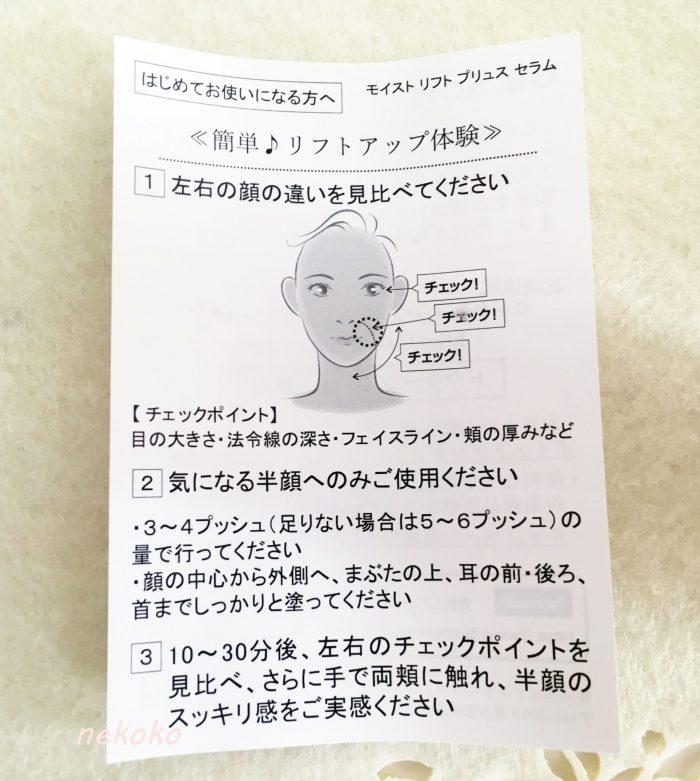 はじめてお使いになる方へ
モイスト リフト プリュス セラム
≪簡単♪リフトアップ体験≫
1 左右の顔の違いを見比べてください
チェック!
チェック!
チェック!
【チェックポイント】
目の大きさ・法令線の深さ・フェイスライン・頬の厚みなど
2 気になる半顔へのみご使用ください
・3～4プッシュ(足りない場合は5～6プッシュ)の
量で行ってください
・顔の中心から外側へ、まぶたの上、耳の前・後ろ、
首までしっかりと塗ってください
3 10～30分後、左右のチェックポイントを
見比べ、さらに手で両頬に触れ、半顔の
スッキリ感をご実感ください
nekoko